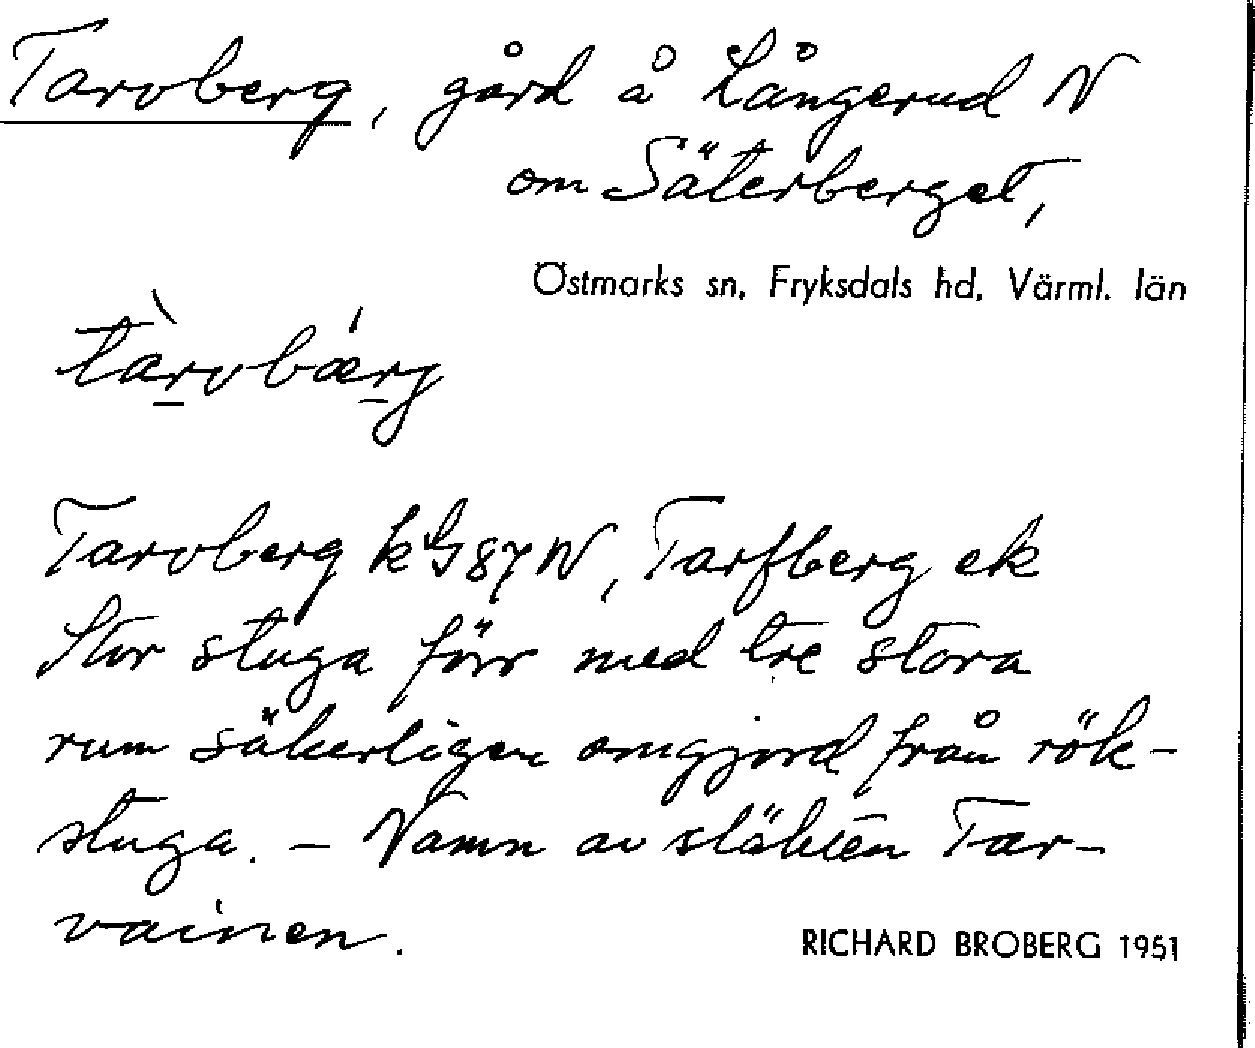 Tarvberg, gård å Långerud N
om Säterberget,
Östmarks sn, Fryksdals hd, Värml. län
tàrvbǽrg
Tarvberg kG87N, Tarfberg ek
Stor stuga förr med tre stora
rum säkerligen omgjord från rök-
stuga. – Namn av släkten Tar-
vainen.
RICHARD BROBERG 1951